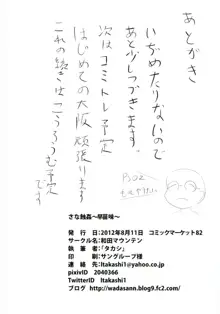 あとがき
いぢめたりないので
あと少しつづきます。
次はコミトレ予定
はじめての大阪頑張ります
これの続きはこうろむ予定です
さな触蟲~早苗味~
発 行 日:2012年8月11日 コミックマーケット82
サークル名:和田マウンテン
執 筆 者:「タカシ」
印　　刷:サングループ様
連 絡 先:ltakashi1@yahoo.co.jp
pixivID 2040366
TwitterID ltakashi1
ブログ http://wadasann.blog9.fc2.com/